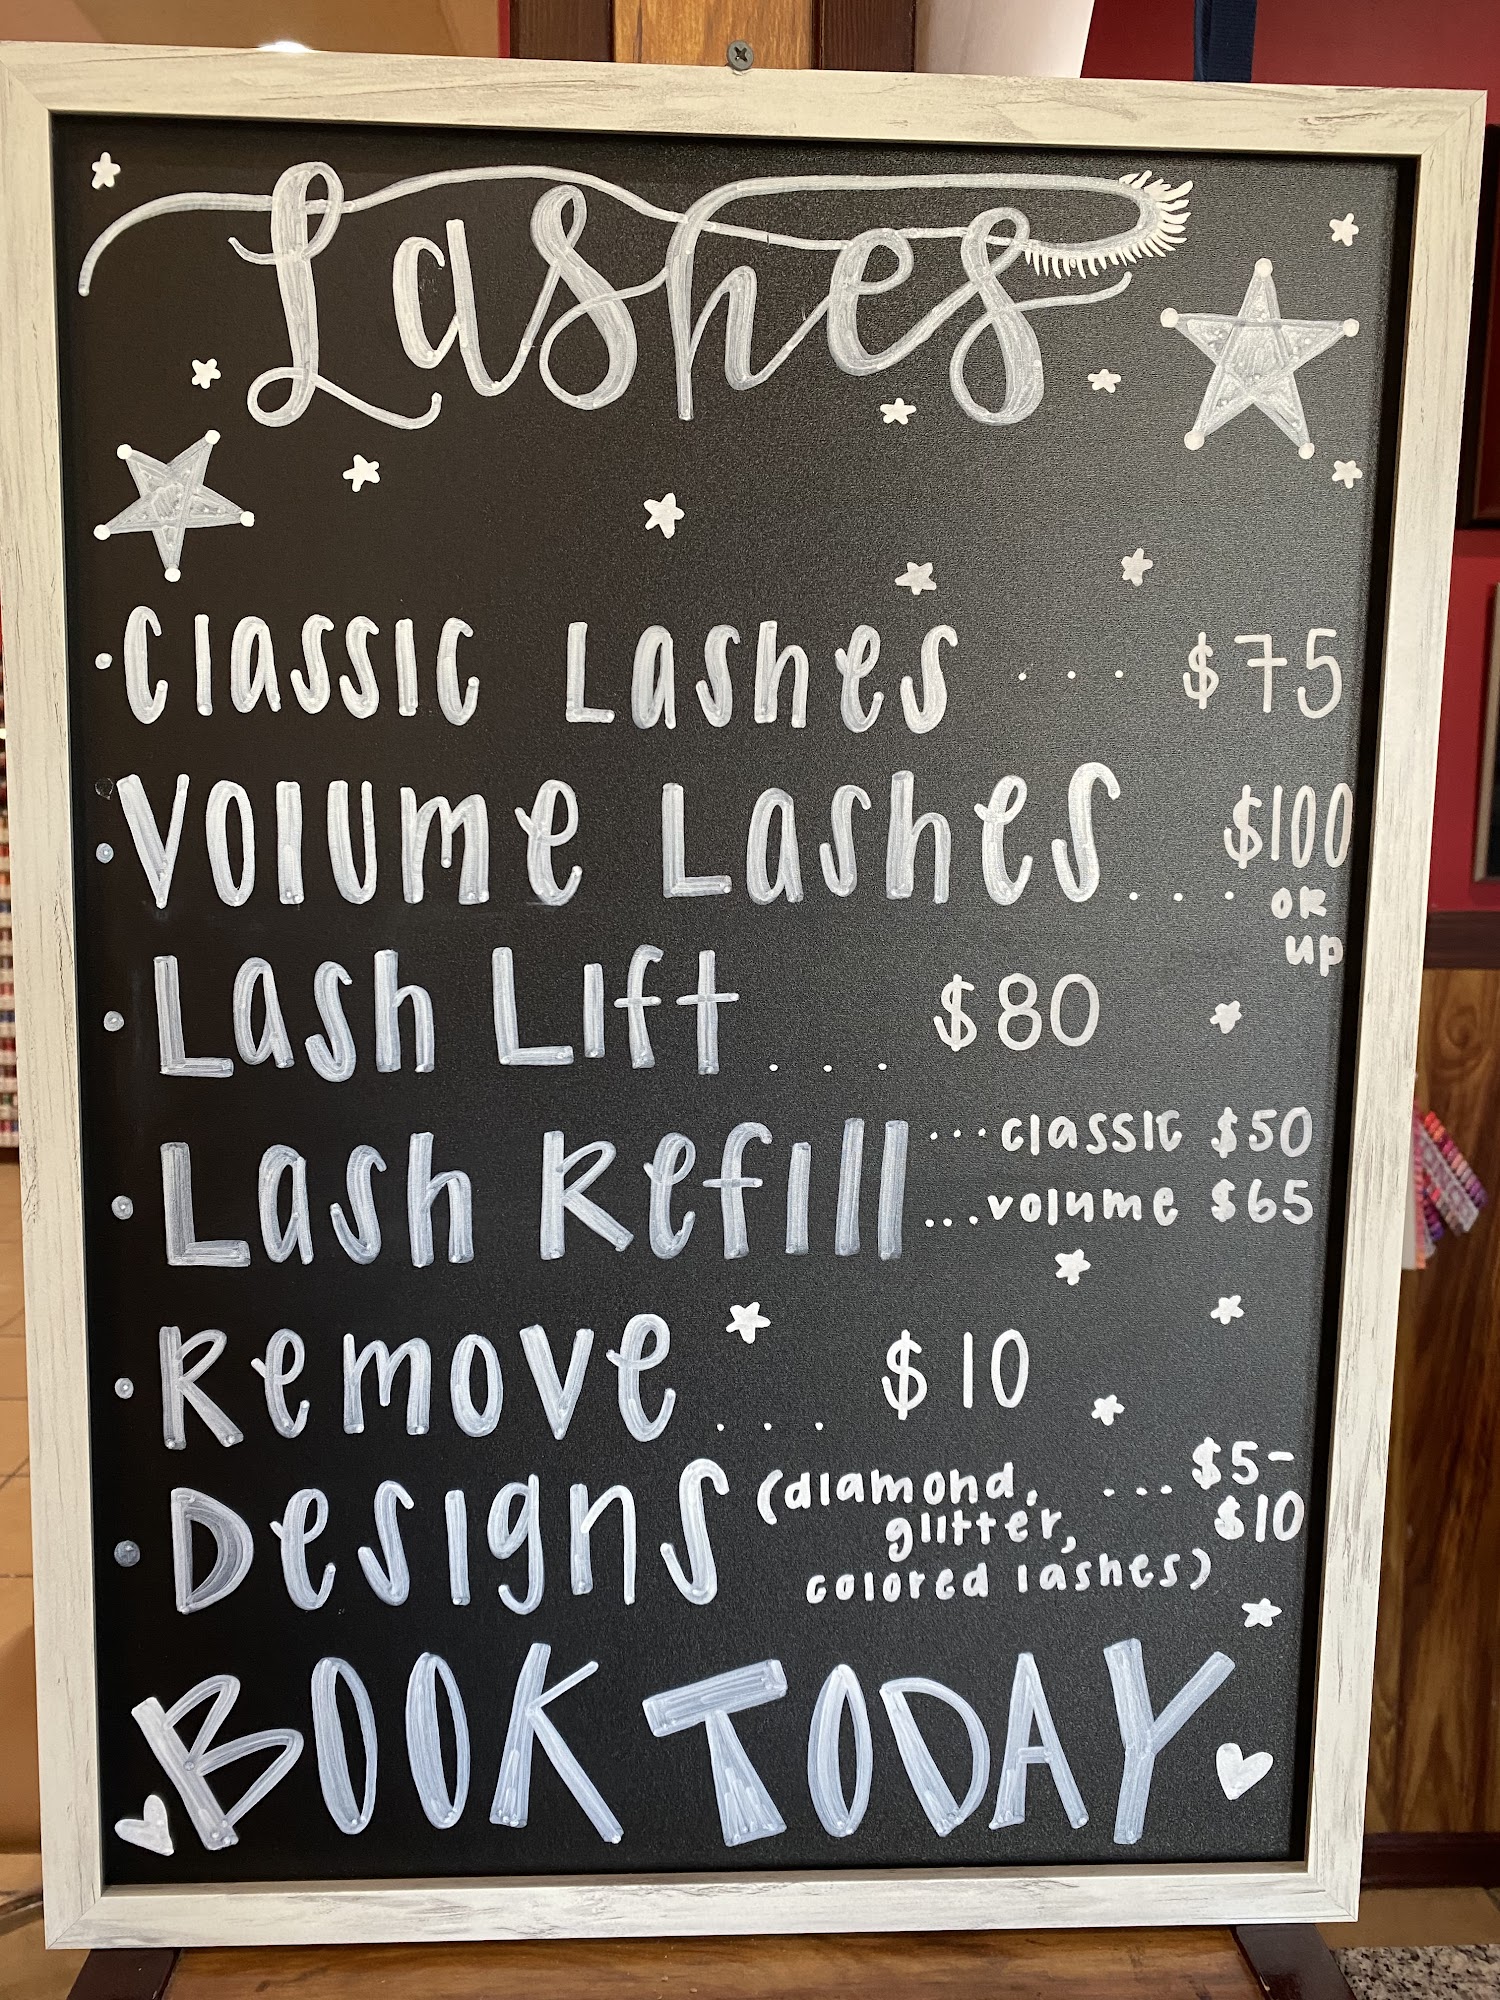 Lashes
• Classic Lashes ... $75
• Volume Lashes ... $100
or
up
• Lash Lift ... $80
• Lash Refill ... classic $50
... volume $65
• Remove ... $10
• Designs (diamond, ... $5-
glitter, $10
colored lashes)
BOOK TODAY